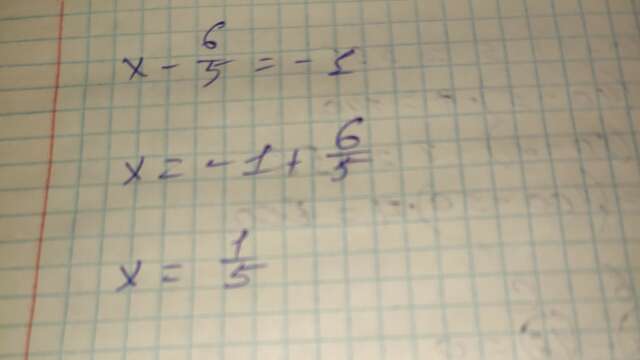 x - 6/5 = - 1
x = - 1 + 6/5
x = 1/5